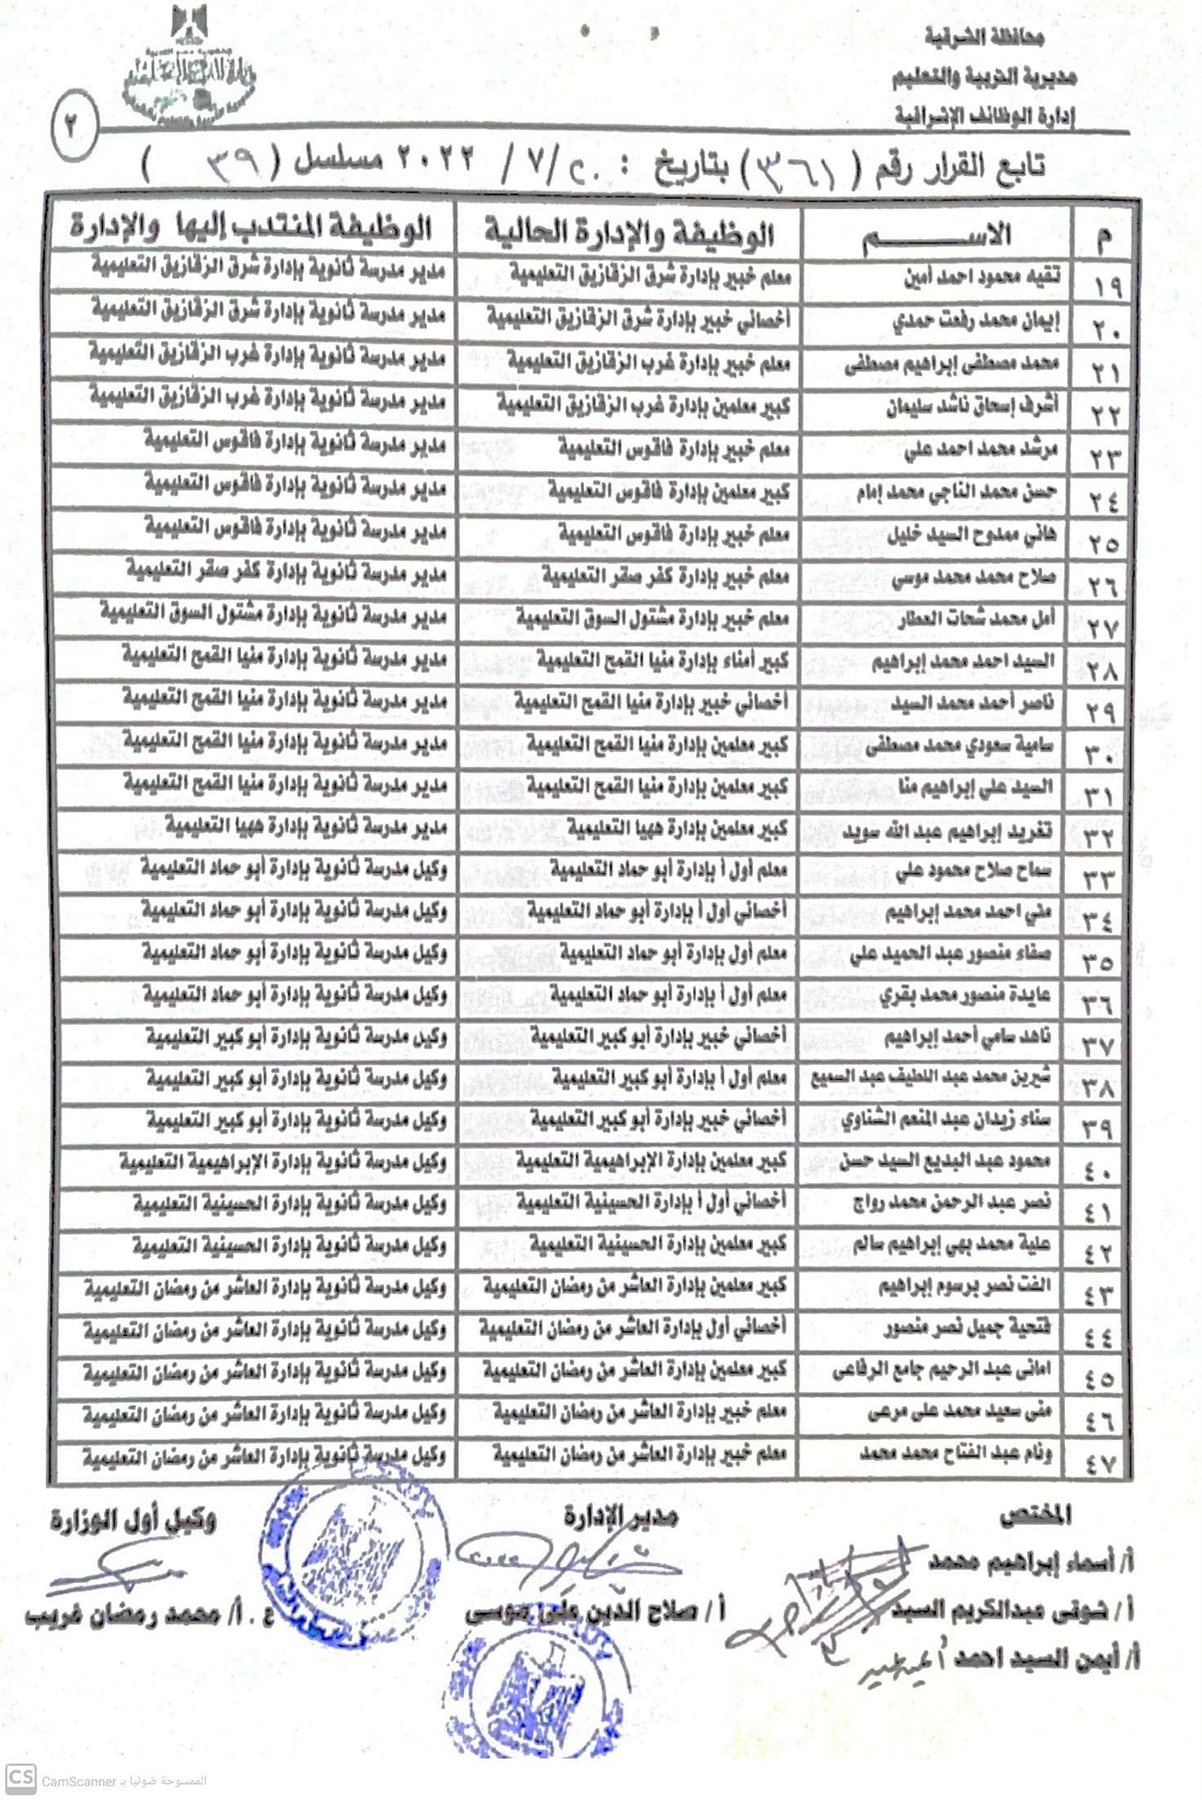 محافظة الشرقية
مديرية التربية والتعليم
إدارة الوظائف الإشرافية
٢
تابع القرار رقم ( ٣٦١ ) بتاريخ : ٢٠ / ٧ / ٢٠٢٢ مسلسل ( ٣٩ )
م الاســـــــم الوظيفة والإدارة الحالية الوظيفة المنتدب إليها والإدارة
١٩ تقيه محمود احمد أمين معلم خبير بإدارة شرق الزقازيق التعليمية مدير مدرسة ثانوية بإدارة شرق الزقازيق التعليمية
٢٠ إيمان محمد رفعت حمدي أخصائي خبير بإدارة شرق الزقازيق التعليمية مدير مدرسة ثانوية بإدارة شرق الزقازيق التعليمية
٢١ محمد مصطفى إبراهيم مصطفى معلم خبير بإدارة غرب الزقازيق التعليمية مدير مدرسة ثانوية بإدارة غرب الزقازيق التعليمية
٢٢ أشرف إسحاق ناشد سليمان كبير معلمين بإدارة غرب الزقازيق التعليمية مدير مدرسة ثانوية بإدارة غرب الزقازيق التعليمية
٢٣ مرشد محمد احمد علي معلم خبير بإدارة فاقوس التعليمية مدير مدرسة ثانوية بإدارة فاقوس التعليمية
٢٤ حسن محمد الناجي محمد إمام كبير معلمين بإدارة فاقوس التعليمية مدير مدرسة ثانوية بإدارة فاقوس التعليمية
٢٥ هاني ممدوح السيد خليل معلم خبير بإدارة فاقوس التعليمية مدير مدرسة ثانوية بإدارة فاقوس التعليمية
٢٦ صلاح محمد محمد موسي معلم خبير بإدارة كفر صقر التعليمية مدير مدرسة ثانوية بإدارة كفر صقر التعليمية
٢٧ أمل محمد شحات العطار معلم خبير بإدارة مشتول السوق التعليمية مدير مدرسة ثانوية بإدارة مشتول السوق التعليمية
٢٨ السيد احمد محمد إبراهيم كبير أمناء بإدارة منيا القمح التعليمية مدير مدرسة ثانوية بإدارة منيا القمح التعليمية
٢٩ ناصر أحمد محمد السيد أخصائي خبير بإدارة منيا القمح التعليمية مدير مدرسة ثانوية بإدارة منيا القمح التعليمية
٣٠ سامية سعودي محمد مصطفى كبير معلمين بإدارة منيا القمح التعليمية مدير مدرسة ثانوية بإدارة منيا القمح التعليمية
٣١ السيد علي إبراهيم منا كبير معلمين بإدارة منيا القمح التعليمية مدير مدرسة ثانوية بإدارة منيا القمح التعليمية
٣٢ تغريد إبراهيم عبد الله سويد كبير معلمين بإدارة ههيا التعليمية مدير مدرسة ثانوية بإدارة ههيا التعليمية
٣٣ سماح صلاح محمود علي معلم أول أ بإدارة أبو حماد التعليمية وكيل مدرسة ثانوية بإدارة أبو حماد التعليمية
٣٤ مني احمد محمد إبراهيم أخصائي أول أ بإدارة أبو حماد التعليمية وكيل مدرسة ثانوية بإدارة أبو حماد التعليمية
٣٥ صفاء منصور عبد الحميد علي معلم أول بإدارة أبو حماد التعليمية وكيل مدرسة ثانوية بإدارة أبو حماد التعليمية
٣٦ عايدة منصور محمد بقري معلم أول أ بإدارة أبو حماد التعليمية وكيل مدرسة ثانوية بإدارة أبو حماد التعليمية
٣٧ ناهد سامي أحمد إبراهيم أخصائي خبير بإدارة أبو كبير التعليمية وكيل مدرسة ثانوية بإدارة أبو كبير التعليمية
٣٨ شيرين محمد عبد اللطيف عبد السميع معلم أول أ بإدارة أبو كبير التعليمية وكيل مدرسة ثانوية بإدارة أبو كبير التعليمية
٣٩ سناء زيدان عبد المنعم الشناوي أخصائي خبير بإدارة أبو كبير التعليمية وكيل مدرسة ثانوية بإدارة أبو كبير التعليمية
٤٠ محمود عبد البديع السيد حسن كبير معلمين بإدارة الإبراهيمية التعليمية وكيل مدرسة ثانوية بإدارة الإبراهيمية التعليمية
٤١ نصر عبد الرحمن محمد رواج أخصائي أول أ بإدارة الحسينية التعليمية وكيل مدرسة ثانوية بإدارة الحسينية التعليمية
٤٢ علية محمد بهي إبراهيم سالم كبير معلمين بإدارة الحسينية التعليمية وكيل مدرسة ثانوية بإدارة الحسينية التعليمية
٤٣ الفت نصر برسوم إبراهيم كبير معلمين بإدارة العاشر من رمضان التعليمية وكيل مدرسة ثانوية بإدارة العاشر من رمضان التعليمية
٤٤ فتحية جميل نصر منصور أخصائي أول بإدارة العاشر من رمضان التعليمية وكيل مدرسة ثانوية بإدارة العاشر من رمضان التعليمية
٤٥ امانى عبد الرحيم جامع الرفاعى كبير معلمين بإدارة العاشر من رمضان التعليمية وكيل مدرسة ثانوية بإدارة العاشر من رمضان التعليمية
٤٦ منى سعيد محمد على مرعى معلم خبير بإدارة العاشر من رمضان التعليمية وكيل مدرسة ثانوية بإدارة العاشر من رمضان التعليمية
٤٧ ونام عبد الفتاح محمد محمد معلم خبير بإدارة العاشر من رمضان التعليمية وكيل مدرسة ثانوية بإدارة العاشر من رمضان التعليمية
المختص مدير الإدارة وكيل أول الوزارة
أ/ أسماء إبراهيم محمد
أ / شوقى عبدالكريم السيد أ / صلاح الدين على موسى ع . أ/ محمد رمضان غريب
أ/ أيمن السيد احمد
CS CamScanner الممسوحة ضوئيا بـ